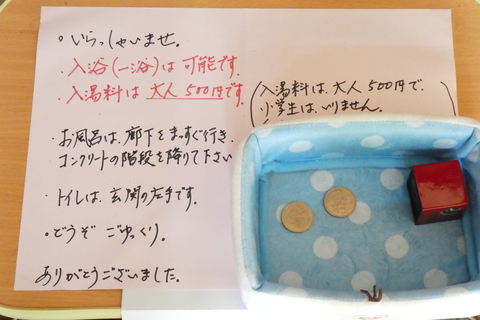 ・いらっしゃいませ。
・入浴(一浴)は可能です。
・入湯料は大人500円です。
(入湯料は、大人500円で、
小学生は、いりません。)
・お風呂は、廊下をまっすぐ行き、
コンクリートの階段を降りて下さい
・トイレは、玄関の左手です。
・どうぞごゆっくり。
ありがとうございました。